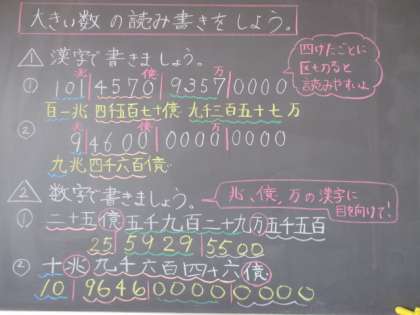 大きい数の読み書きをしよう。
1 漢字で書きましょう。
四けたごとに
区切ると
読みやすいよ
兆 億 万
① 101|4570|9357|0000
百一兆 四千五百七十億 九千三百五十七万
② 兆 億 万
9|4600|0000|0000
九兆四千六百億
2 数字で書きましょう。
兆、億、万の漢字に
目を向けて!
① 二十五億五千九百二十九万五千五百
25|5929|5500
② 十兆九千六百四十六億
10|9646|0000|0000